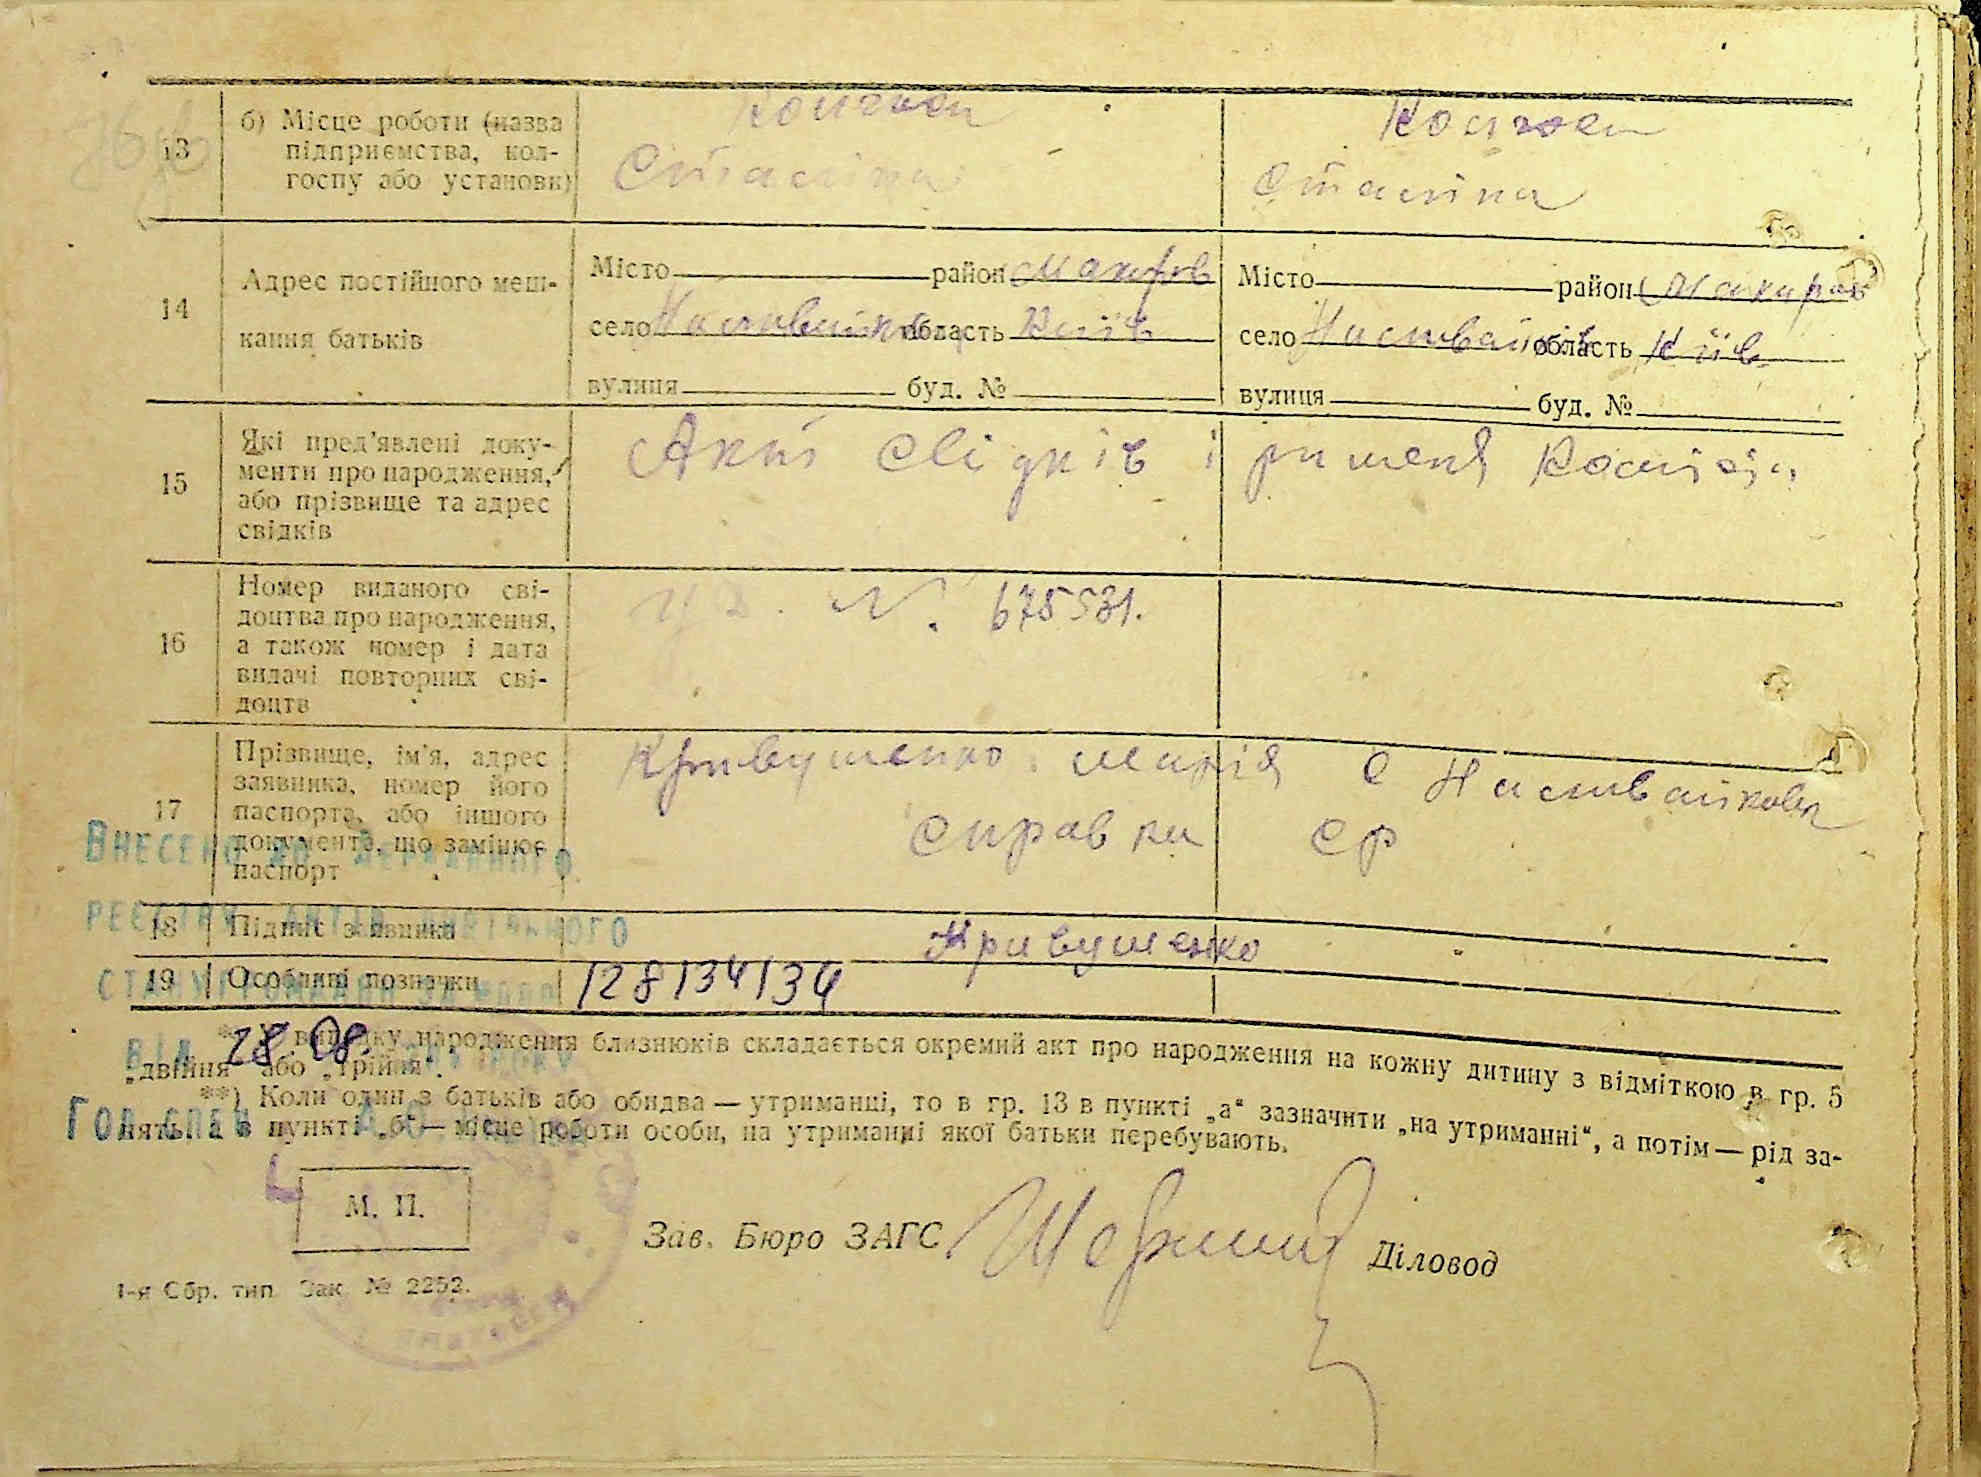 13
б) Місце роботи (назва
підприємства, кол-
госпу або установи)
колгосп
Сталіна
Колгосп
Сталіна
14
Адрес постійного меш-
кання батьків
Місто район Макарів
село Наливайківка область Київ
вулиця буд. №
Місто район Макарів
село область Київ
вулиця буд. №
15
Які пред'явлені доку-
менти про народження,
або прізвище та адрес
свідків
Акт свідків і рішеня
16
Номер виданого сві-
доцтва про народження,
а також номер і дата
видачі повторних сві-
доцтв
N. 675531.
17
Прізвище, ім'я, адрес
заявника, номер його
паспорта, або іншого
документа, що замінює
паспорт
Кривушенко Марія С Наливайковка
справки СР
18 Підпис заявника
Кривушенко
19 Особливі позначки
128134134
Внесено до Державного
реєстру актів цивільного
стану громадян за №
від 28.08.
*) У випадку народження близнюків складається окремий акт про народження на кожну дитину з відміткою в гр. 5
„двійня" або „трійня".
**) Коли один з батьків або обидва — утриманці, то в гр. 13 в пункті „а" зазначити „на утриманні", а потім — рід за-
няття, а в пункті „б" — місце роботи особи, на утриманні якої батьки перебувають.
М. П.
Зав. Бюро ЗАГС
Діловод
1-я Обр. тип. Зак. № 2252.